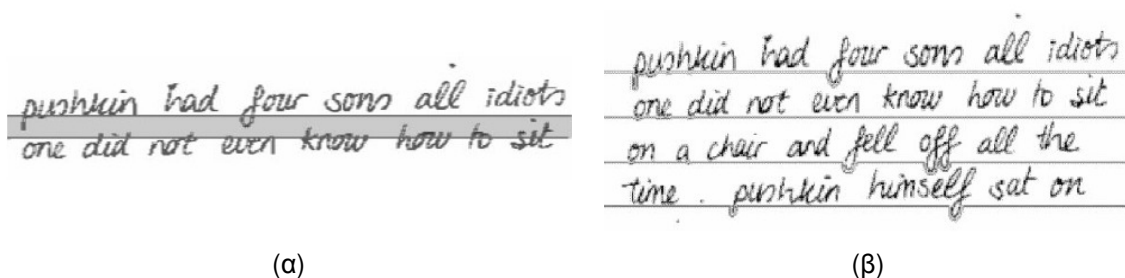 pushkin had four sons all idiots
one did not even know how to sit
(α)
pushkin had four sons all idiots
one did not even know how to sit
on a chair and fell off all the
time. pushkin himself sat on
(β)